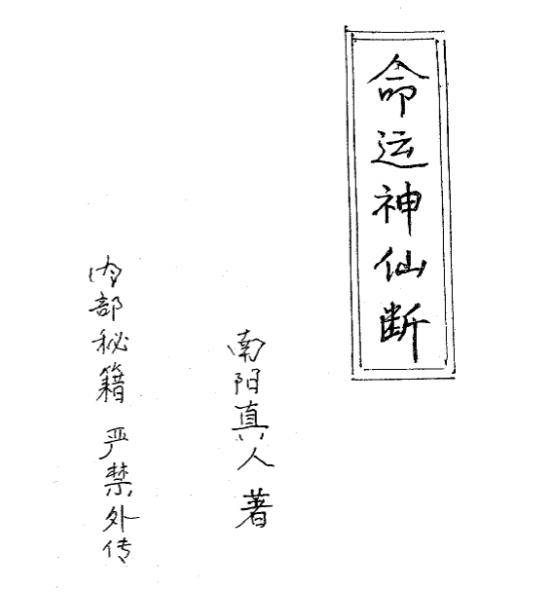 命运神仙断
南阳真人 著
内部秘籍 严禁外传